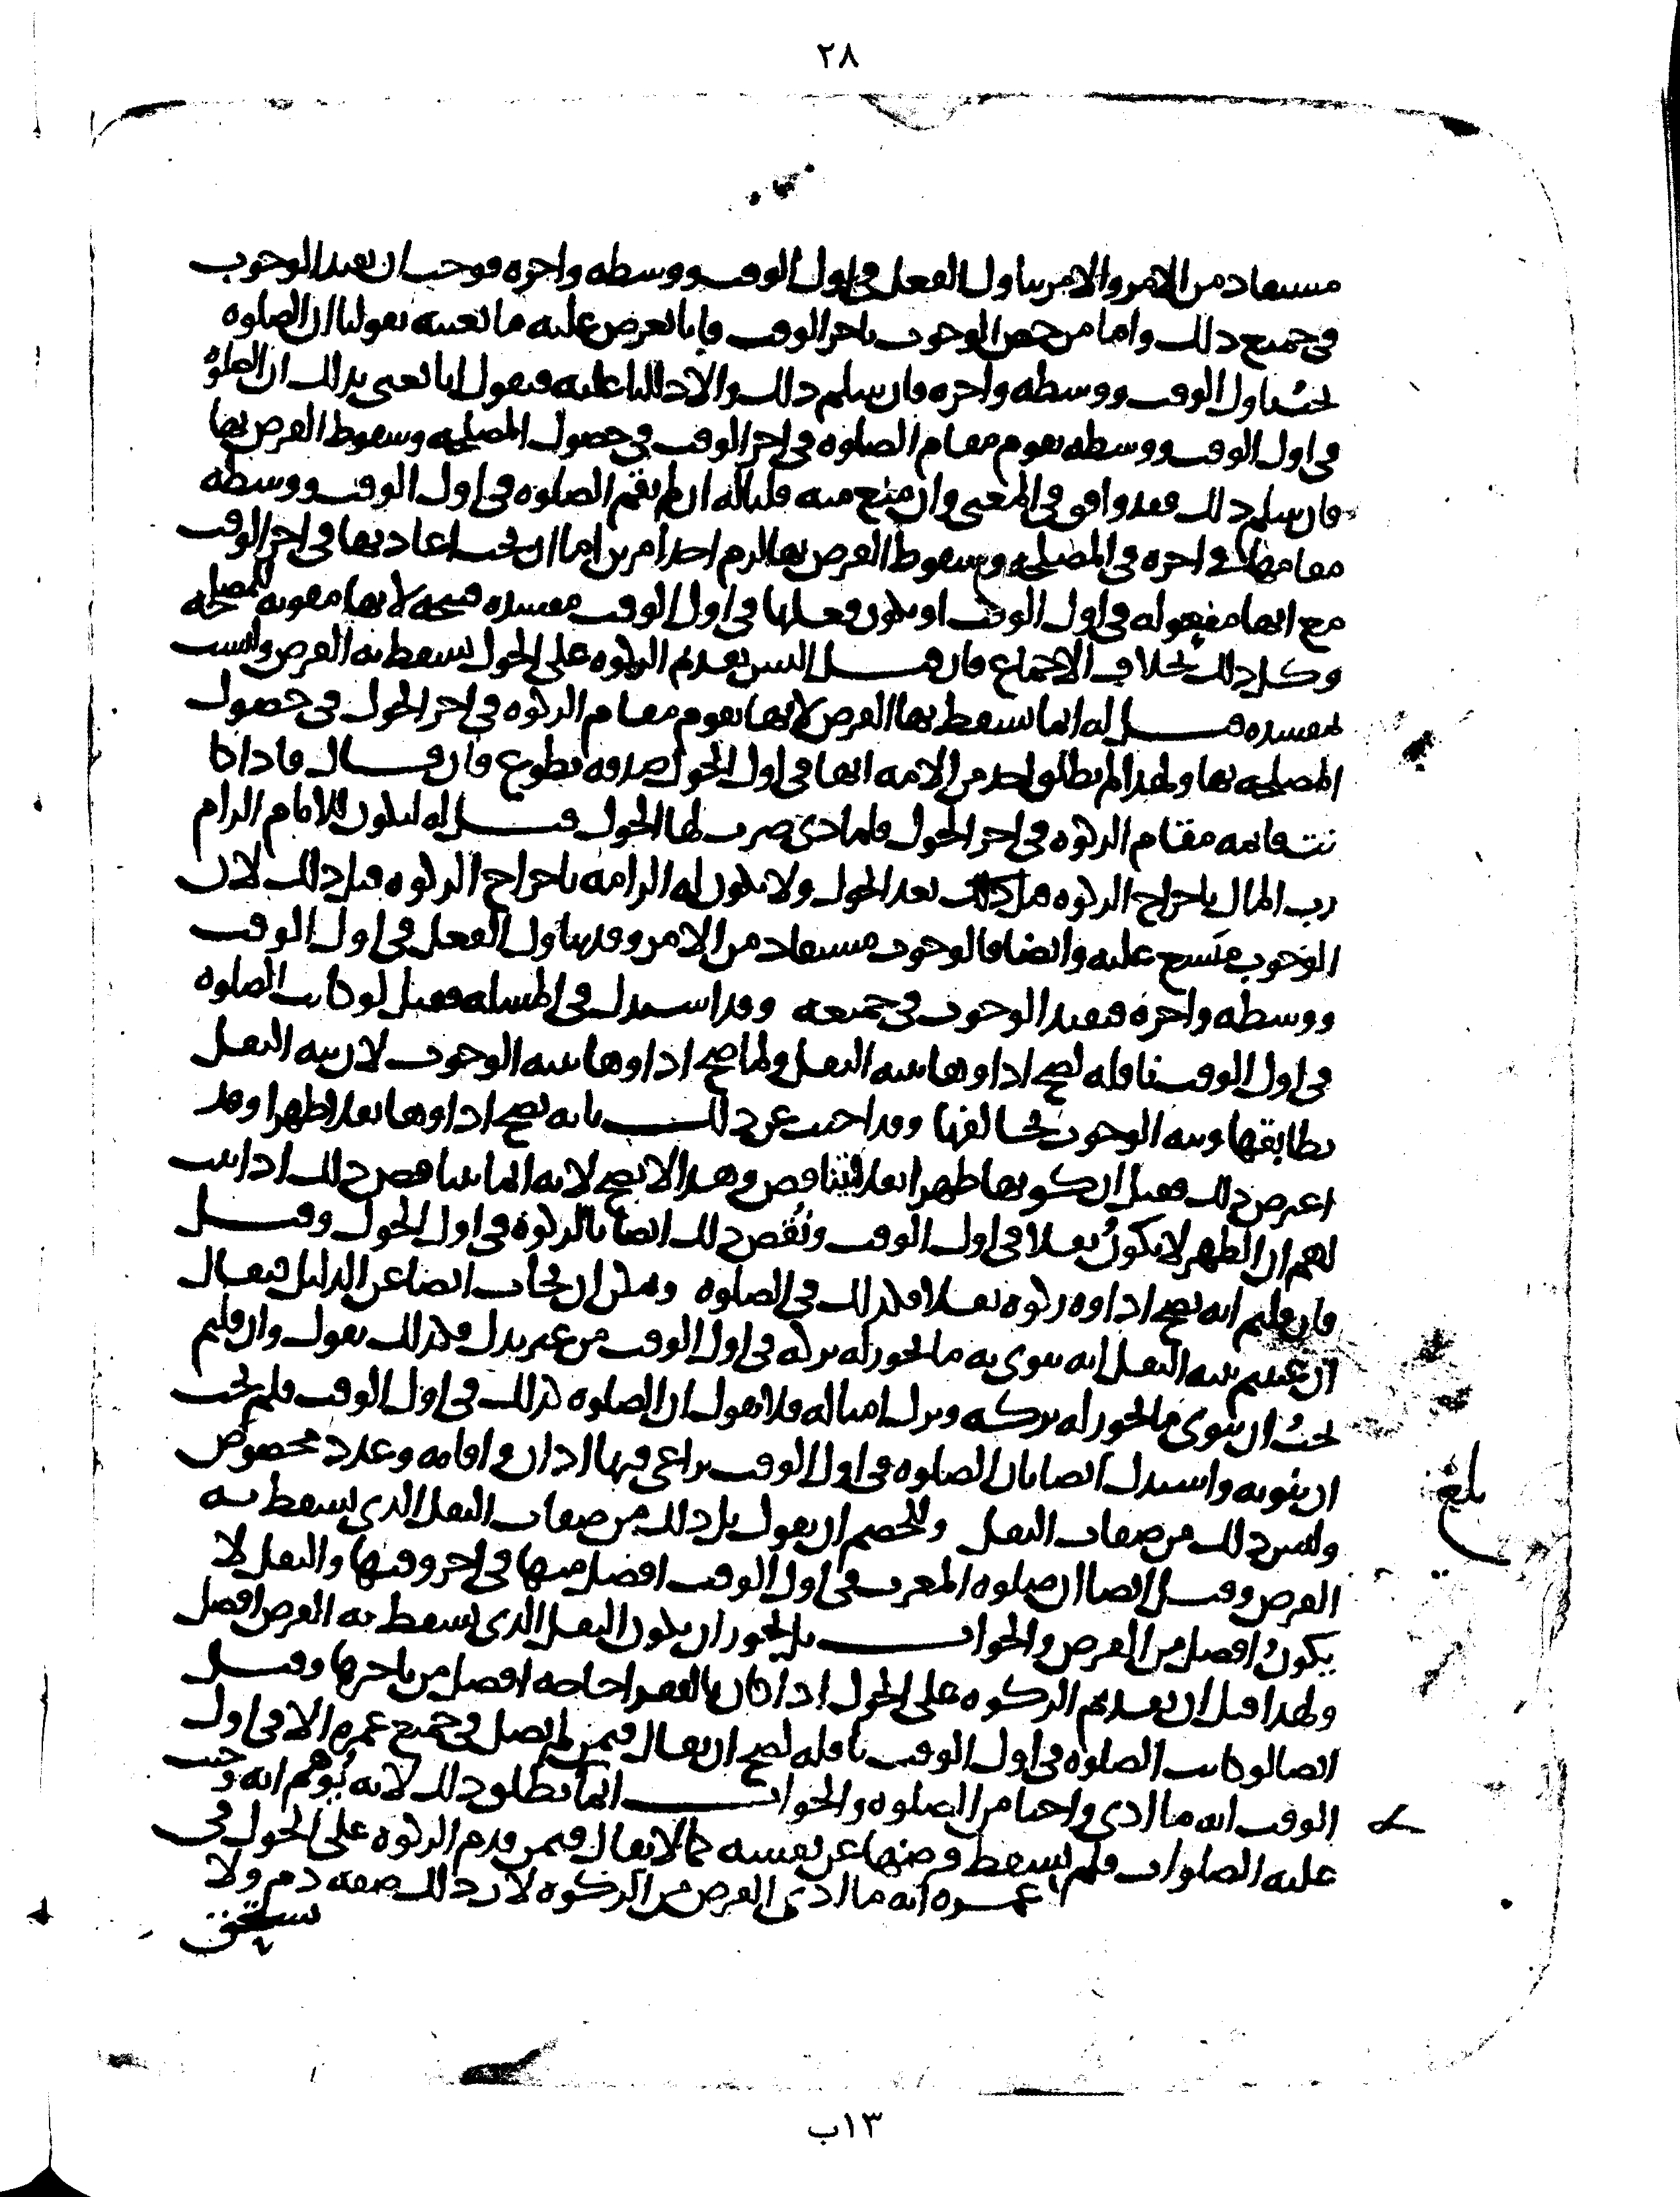 ٢٨
مستفاد من الامر والامر يتناول الفعل في اول الوقت ووسطه واخره فوجب ان يفيد الوجوب
في جميع ذلك واما من خص الوجوب باخر الوقت فانا نعرض عليه ما نعنيه بقولنا ان الصلوه
تجب في اول الوقت ووسطه واخره فان سلم ذلك والا دللنا عليه فنقول انا نعني بذلك ان الصلوه
في اول الوقت ووسطه تقوم مقام الصلوه في اخر الوقت في حصول المصلحه وسقوط الفرض بها
فان سلم ذلك فقد وافق في المعنى وان منع منه قلنا له ان لم تقم الصلوه في اول الوقت ووسطه
مقامها في اخره في المصلحه وسقوط الفرض بها لزم احد امرين اما ان تجب اعادتها في اخر الوقت
مع انها مفعوله في اول الوقت او يكون فعلها في اول الوقت مفسده قبيحه لانها مفوته للمصلحه
وكل ذلك بخلاف الاجماع فان قيل اليس تقديم الزكوه على الحول يسقط به الفرض وليست
بمفسده قيل له انما سقط بها الفرض لانها تقوم مقام الزكوه في اخر الحول في حصول
المصلحه بها ولهذا لم يطلق احد من الامه انها في اول الحول صدقه تطوع فان قال فاذا كا
نت قائمه مقام الزكوه في اخر الحول فلماذى ضرب لها الحول قيل له ليكون للامام الزام
رب المال باخراج الزكوه بعد الحول ولا يكون له الزامه باخراج الزكوه قبل ذلك لان
الوجوب متسع عليه وايضا فالوجوب مستفاد من الامر وقد تناول الفعل في اول الوقت
ووسطه واخره فيفيد الوجوب في جميعه وقد استدل في المسله فقيل لو كانت الصلوه
في اول الوقت نافله لصح اداوها بنيه النفل ولما صح اداوها بنيه الوجوب لان نيه النفل
تطابقها ونيه الوجوب تخالفها وقد اجيب عن ذلك بانه يصح اداوها نفلا ظهرا وقد
اعترض ذلك فقيل ان كونها ظهرا نفلا يتناقض وهذا لا يصح لانه انما يتناقض ذلك اذا ثبت
لهم ان الظهر لا يكون نفلا في اول الوقت ونقض ذلك ايضا بالزكوه في اول الحول وقيل
فان قلتم انه يصح اداوه زكوه نفلا فكذلك في الصلوه ويمكن ان يجاب ايضا عن الدليل فيقال
ان عنيتم بنيه النفل انه ينوى به ما يجوز له تركه في اول الوقت من غير بدل فكذلك نقول وان قلتم
يجب ان ينوى ما يجوز له تركه وترك امثاله فلا نقول ان الصلوه كذلك في اول الوقت فلم يجب
ان ينويه واستدل ايضا بان الصلوه في اول الوقت يراعى فيها اذان واقامه وعدد مخصوص
وليس ذلك من صفات النفل وللخصم ان يقول بل ذلك من صفات النفل الذي يسقط به
الفرض وقيل ايضا ان صلوه المغرب في اول الوقت افضل منها في اخر وقتها والنفل لا
يكون افضل من الفرض والجواب بل يجوز ان يكون النفل الذي يسقط به الفرض افضل
ولهذا قيل ان تقديم الزكوه على الحول اذا كان بالفقرا حاجه افضل من تاخيرها وقيل
ايضا لو كانت الصلوه في اول الوقت نافله لصح ان يقال فيمن لم يصل في جميع عمره الا في اول
الوقت انه ما ادى واجبا من الصلوه والجواب انما يطلق ذلك لانه يوهم انه وجب
عليه الصلوات فلم يسقط فرضها عن نفسه كما لا يقال فيمن قدم الزكوه على الحول في
عمره انه ما ادى الفرض من الزكوه لان ذلك صفه ذم ولا
يستحق
بلغ
١٣ب